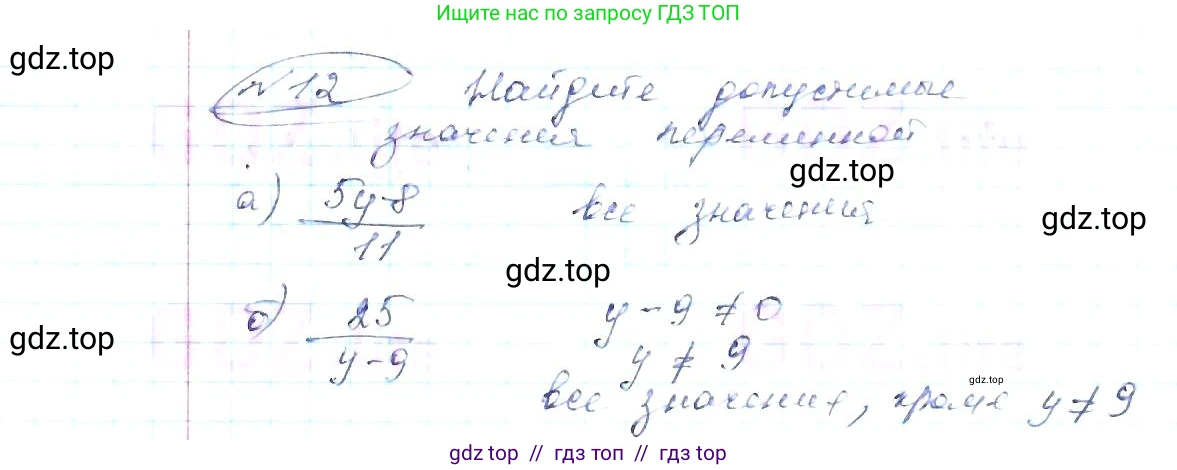 Ищите нас по запросу ГДЗ ТОП
gdz.top
№12 Найдите допустимые
значения переменной
gdz.top
а) 5y-8 / 11 все значения
gdz.top
gdz.top
б) 25 / y-9 y-9 ≠ 0
gdz.top
y ≠ 9
gdz.top
все значения, кроме y≠9
gdz top // гдз топ // gdz top